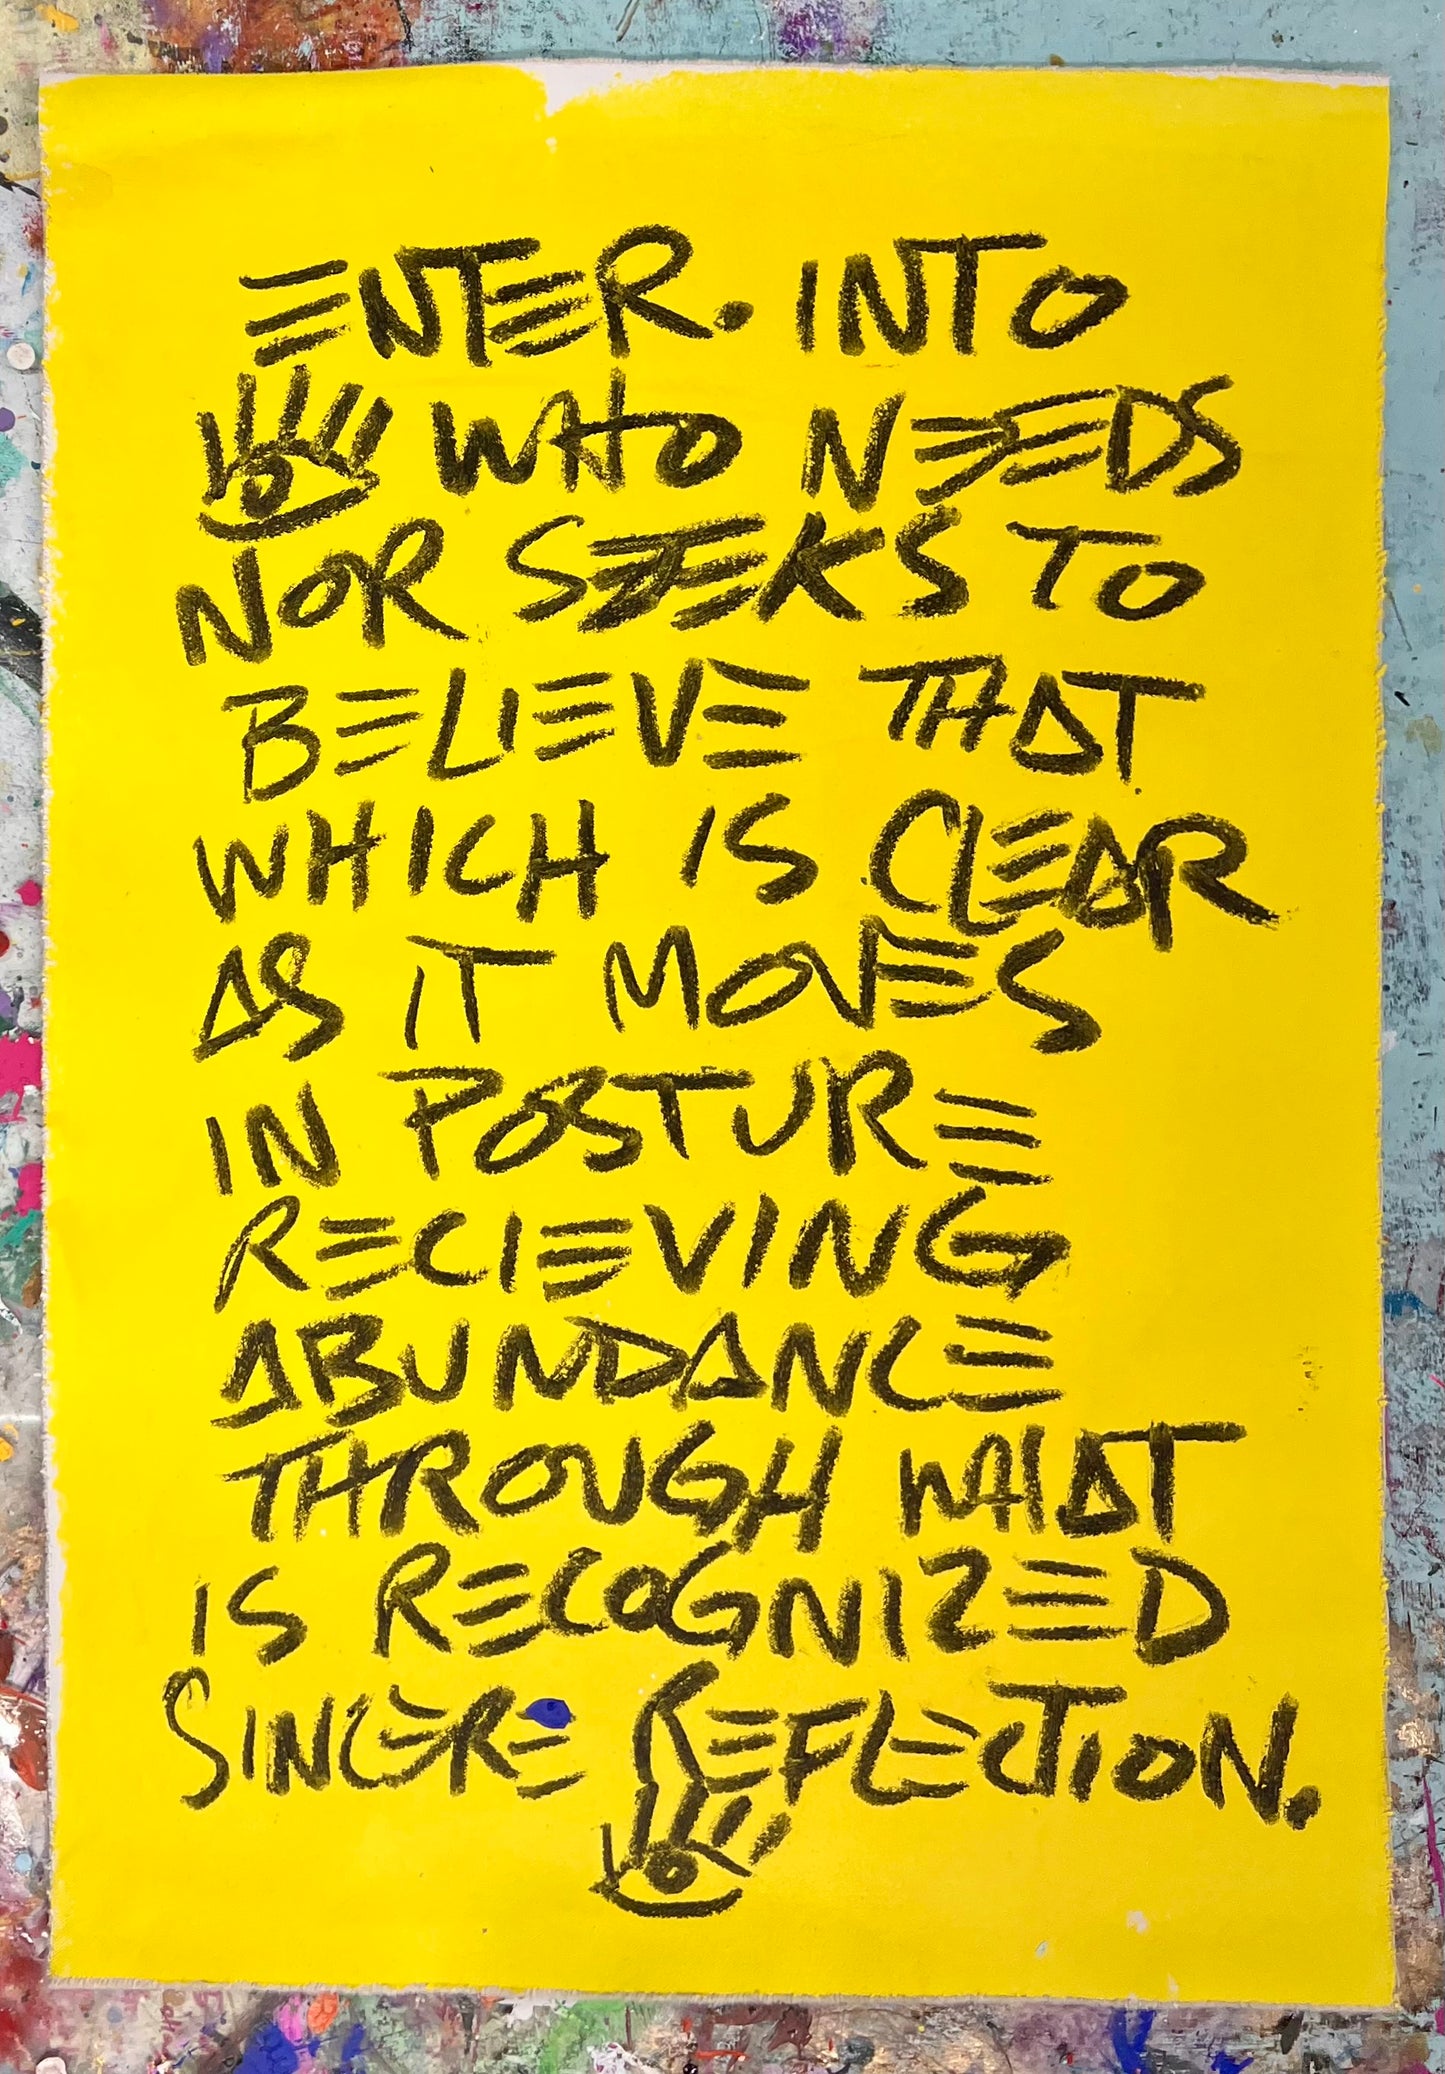 ENTER. INTO
WHO NEEDS
NOR SEEKS TO
BELIEVE THAT
WHICH IS CLEAR
AS IT MOVES
IN POSTURE
RECIEVING
ABUNDANCE
THROUGH WHAT
IS RECOGNIZED
SINCERE REFLECTION.